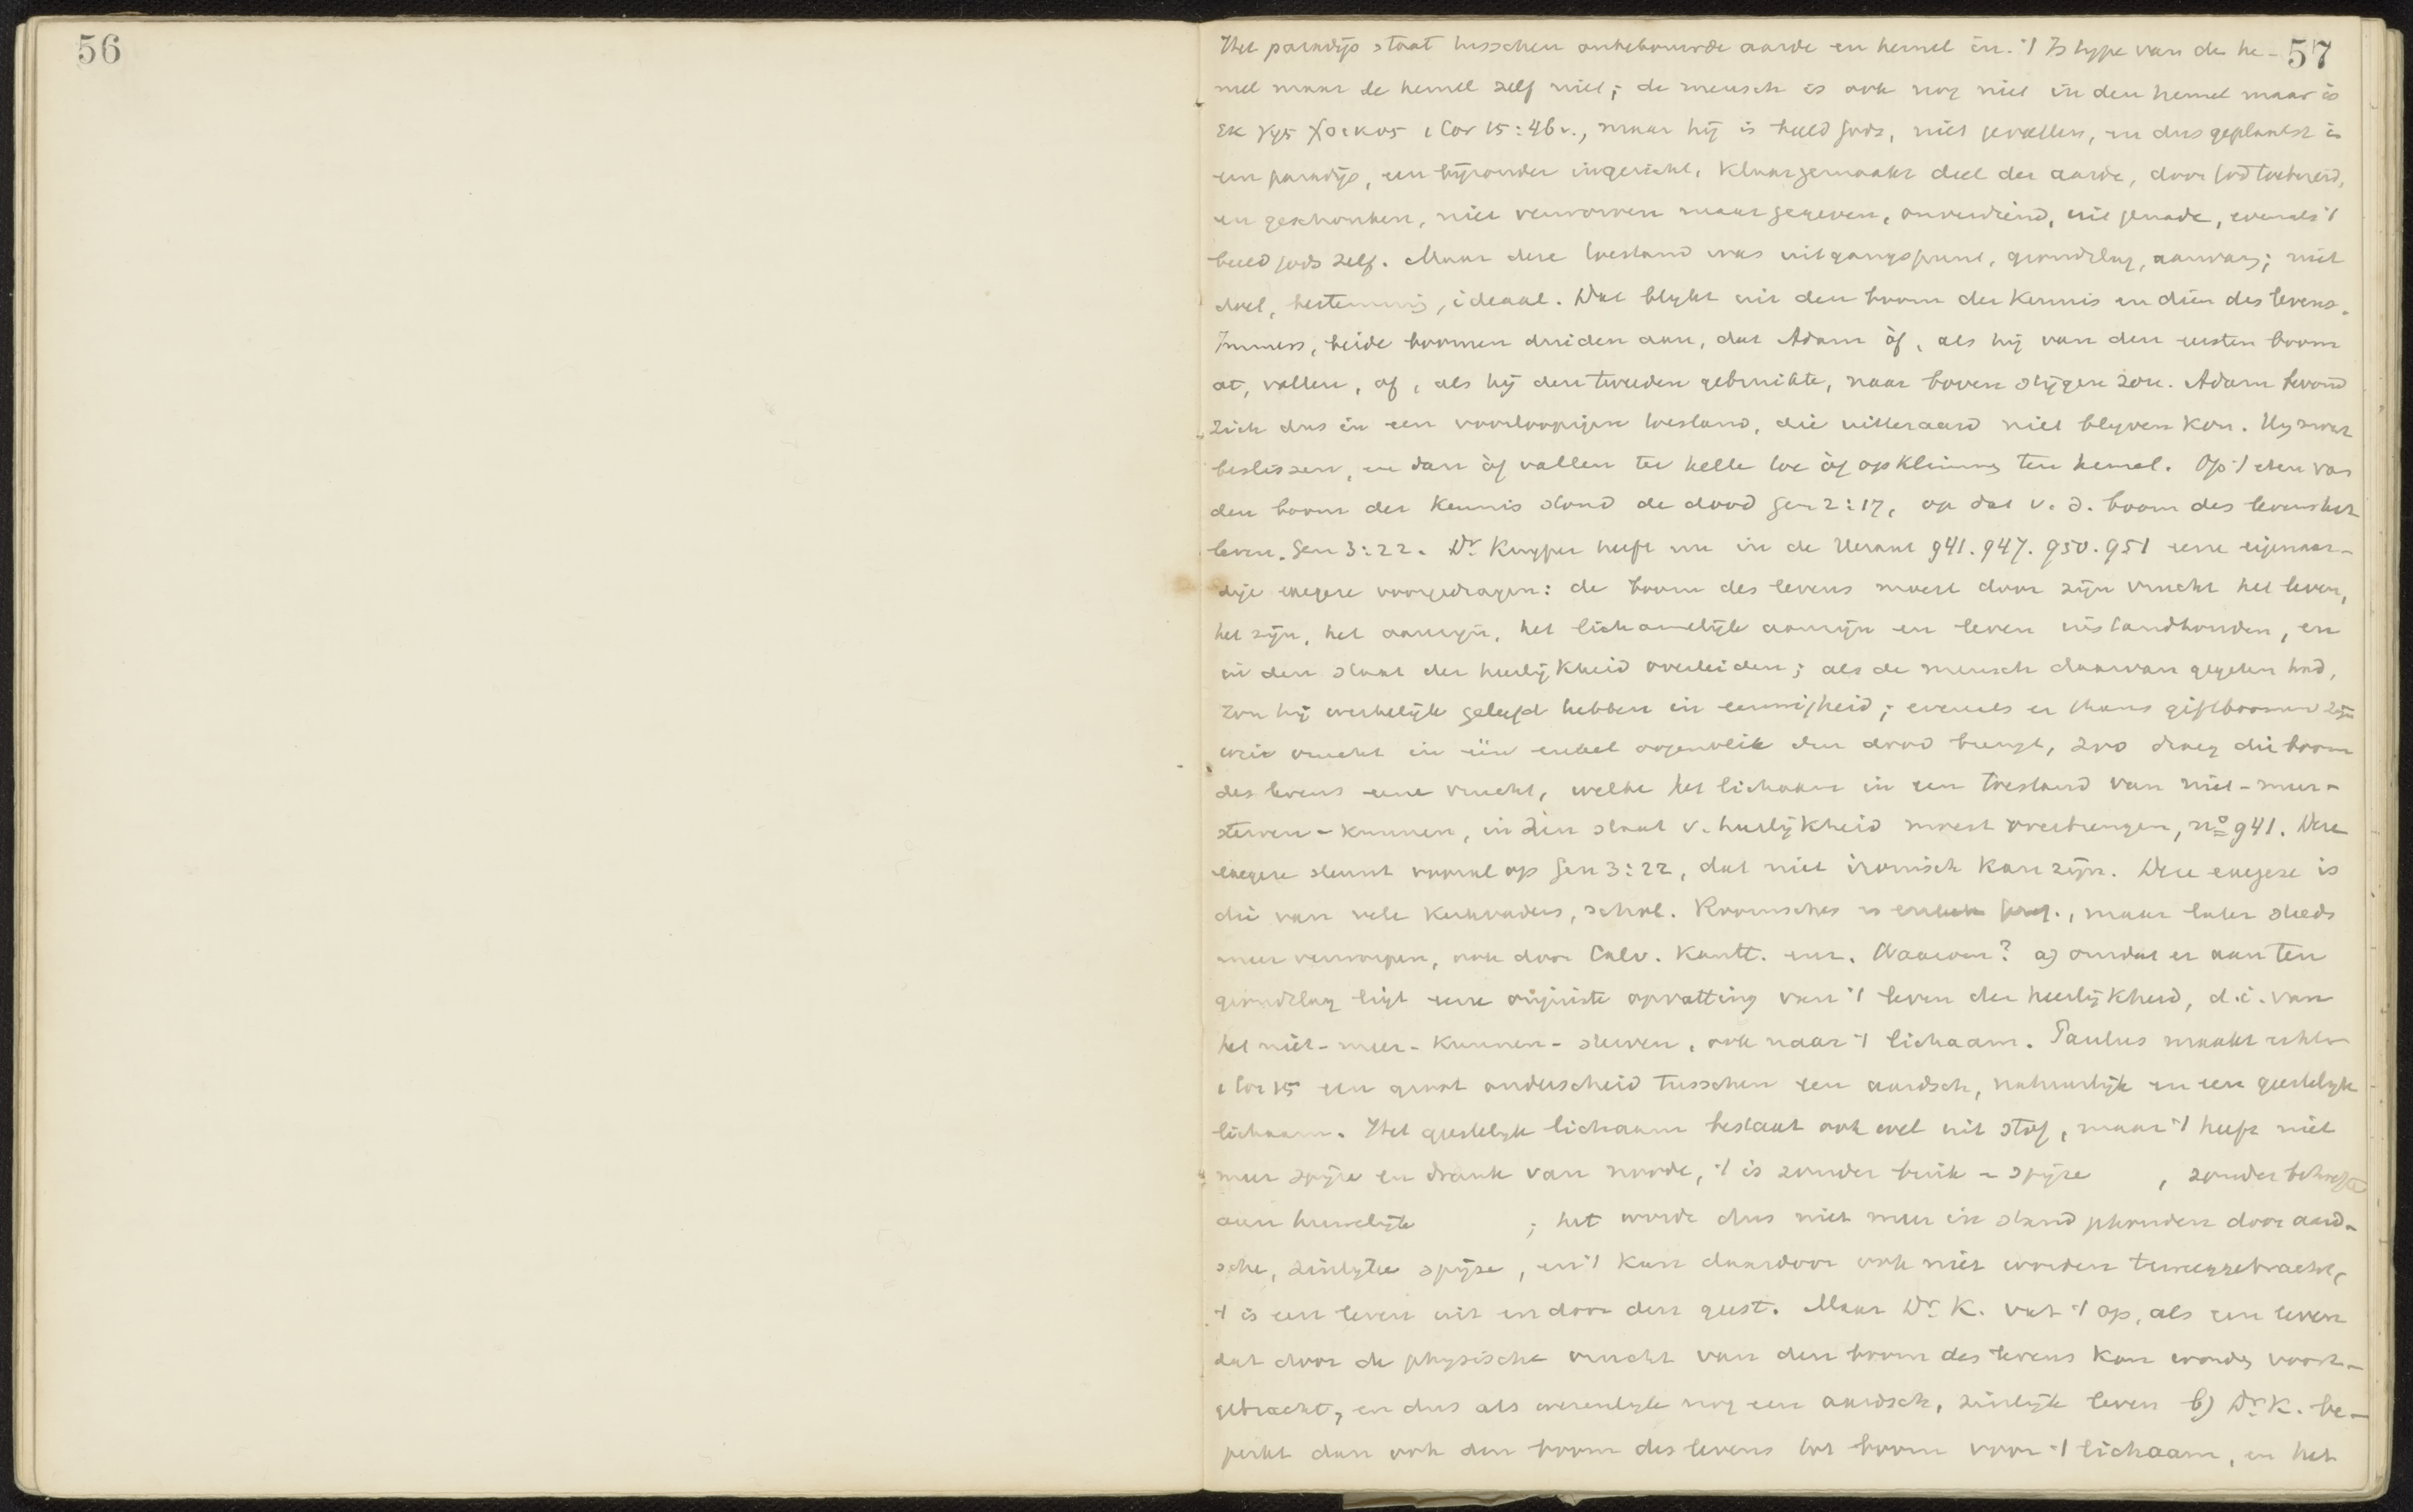 56
57
Het paradijs staat tusschen onbebouwde aarde en hemel in. 't Is type van de he-
mel maar de hemel zelf niet; de mensch is ook nog niet in den hemel maar is
εκ γης χοικος 1 Cor 15:46v., maar hij is beeld Gods, niet gevallen, en dus geplaatst in
een paradijs, een bijzonder ingericht, klaargemaakt deel der aarde, door God toebereid,
en geschonken, niet verworven maar gegeven, onverdiend, uit genade, evenals 't
beeld Gods zelf. Maar deze toestand was uitgangspunt, grondslag, aanvang; niet
doel, bestemming, ideaal. Dat blykt uit den boom der kennis en dien des levens.
Immers, beide boomen duiden aan, dat Adam òf, als hij van den eersten boom
at, vallen, of, als hij den tweeden gebruikte, naar boven stijgen zou. Adam bevond
zich dus in een voorloopigen toestand, die uitteraard niet blyven kon. Hy moest
beslissen, en dan òf vallen ter helle toe òf opklimmen ten hemel. Op 't eten van
den boom der kennis stond de dood Gen 2:17, op dat v. d. boom des levens het
leven. Gen 3:22. Dr. Kuyper heeft nu in de Heraut 941. 947. 950. 951 eene eigenaar-
dige exegese voorgedragen: de boom des levens moest door zijn vrucht het leven,
het zijn, het aanzijn, het lichamelijk aanzijn en leven instandhouden, en
in den staat der heerlijkheid overleiden; als de mensch daarvan gegeten had,
zou hij werkelijk geleefd hebben in eeuwigheid; evenals er thans giftboomen zijn
wier vrucht in één enkel oogenblik den dood brengt, zoo droeg die boom
des levens eene vrucht, welke het lichaam in een toestand van niet-meer-
sterven-kunnen, in den staat v. heerlijkheid moest overbrengen, no 941. Deze
exegese steunt vooral op Gen 3:22, dat niet ironisch kan zijn. Deze exegese is
die van vele kerkvaders, schol. Roomsches en enkele Geref., maar later steeds
meer verworpen, ook door Calv. Kantt. enz. Waarom? a) omdat er aan ten
grondslag ligt eene onjuiste opvatting van 't leven der heerlijkheid, d.i. van
het niet-meer-kunnen-sterven, ook naar 't lichaam. Paulus maakt echter
1 Cor 15 een groot onderscheid tusschen een aardsch, natuurlijk en een geestelyk
lichaam. Het geestelyk lichaam bestaat ook wel uit stof, maar 't heeft niet
meer spijze en drank van noode, 't is zonder buik - spijze , zonder behoefte
aan huwelijk ; het wordt dus niet meer in stand gehouden door aard-
sche, zinlyke spijze, en 't kan daardoor ook niet worden teweeggebracht,
't is een leven uit en door den geest. Maar Dr. K. vat 't op, als een leven
dat door de physische vrucht van den boom des levens kan worden voort-
gebracht, en dus als wezenlyk nog een aardsch, zinlijk leven b) Dr. K. be-
perkt dan ook den boom des levens tot boom voor 't lichaam, en het